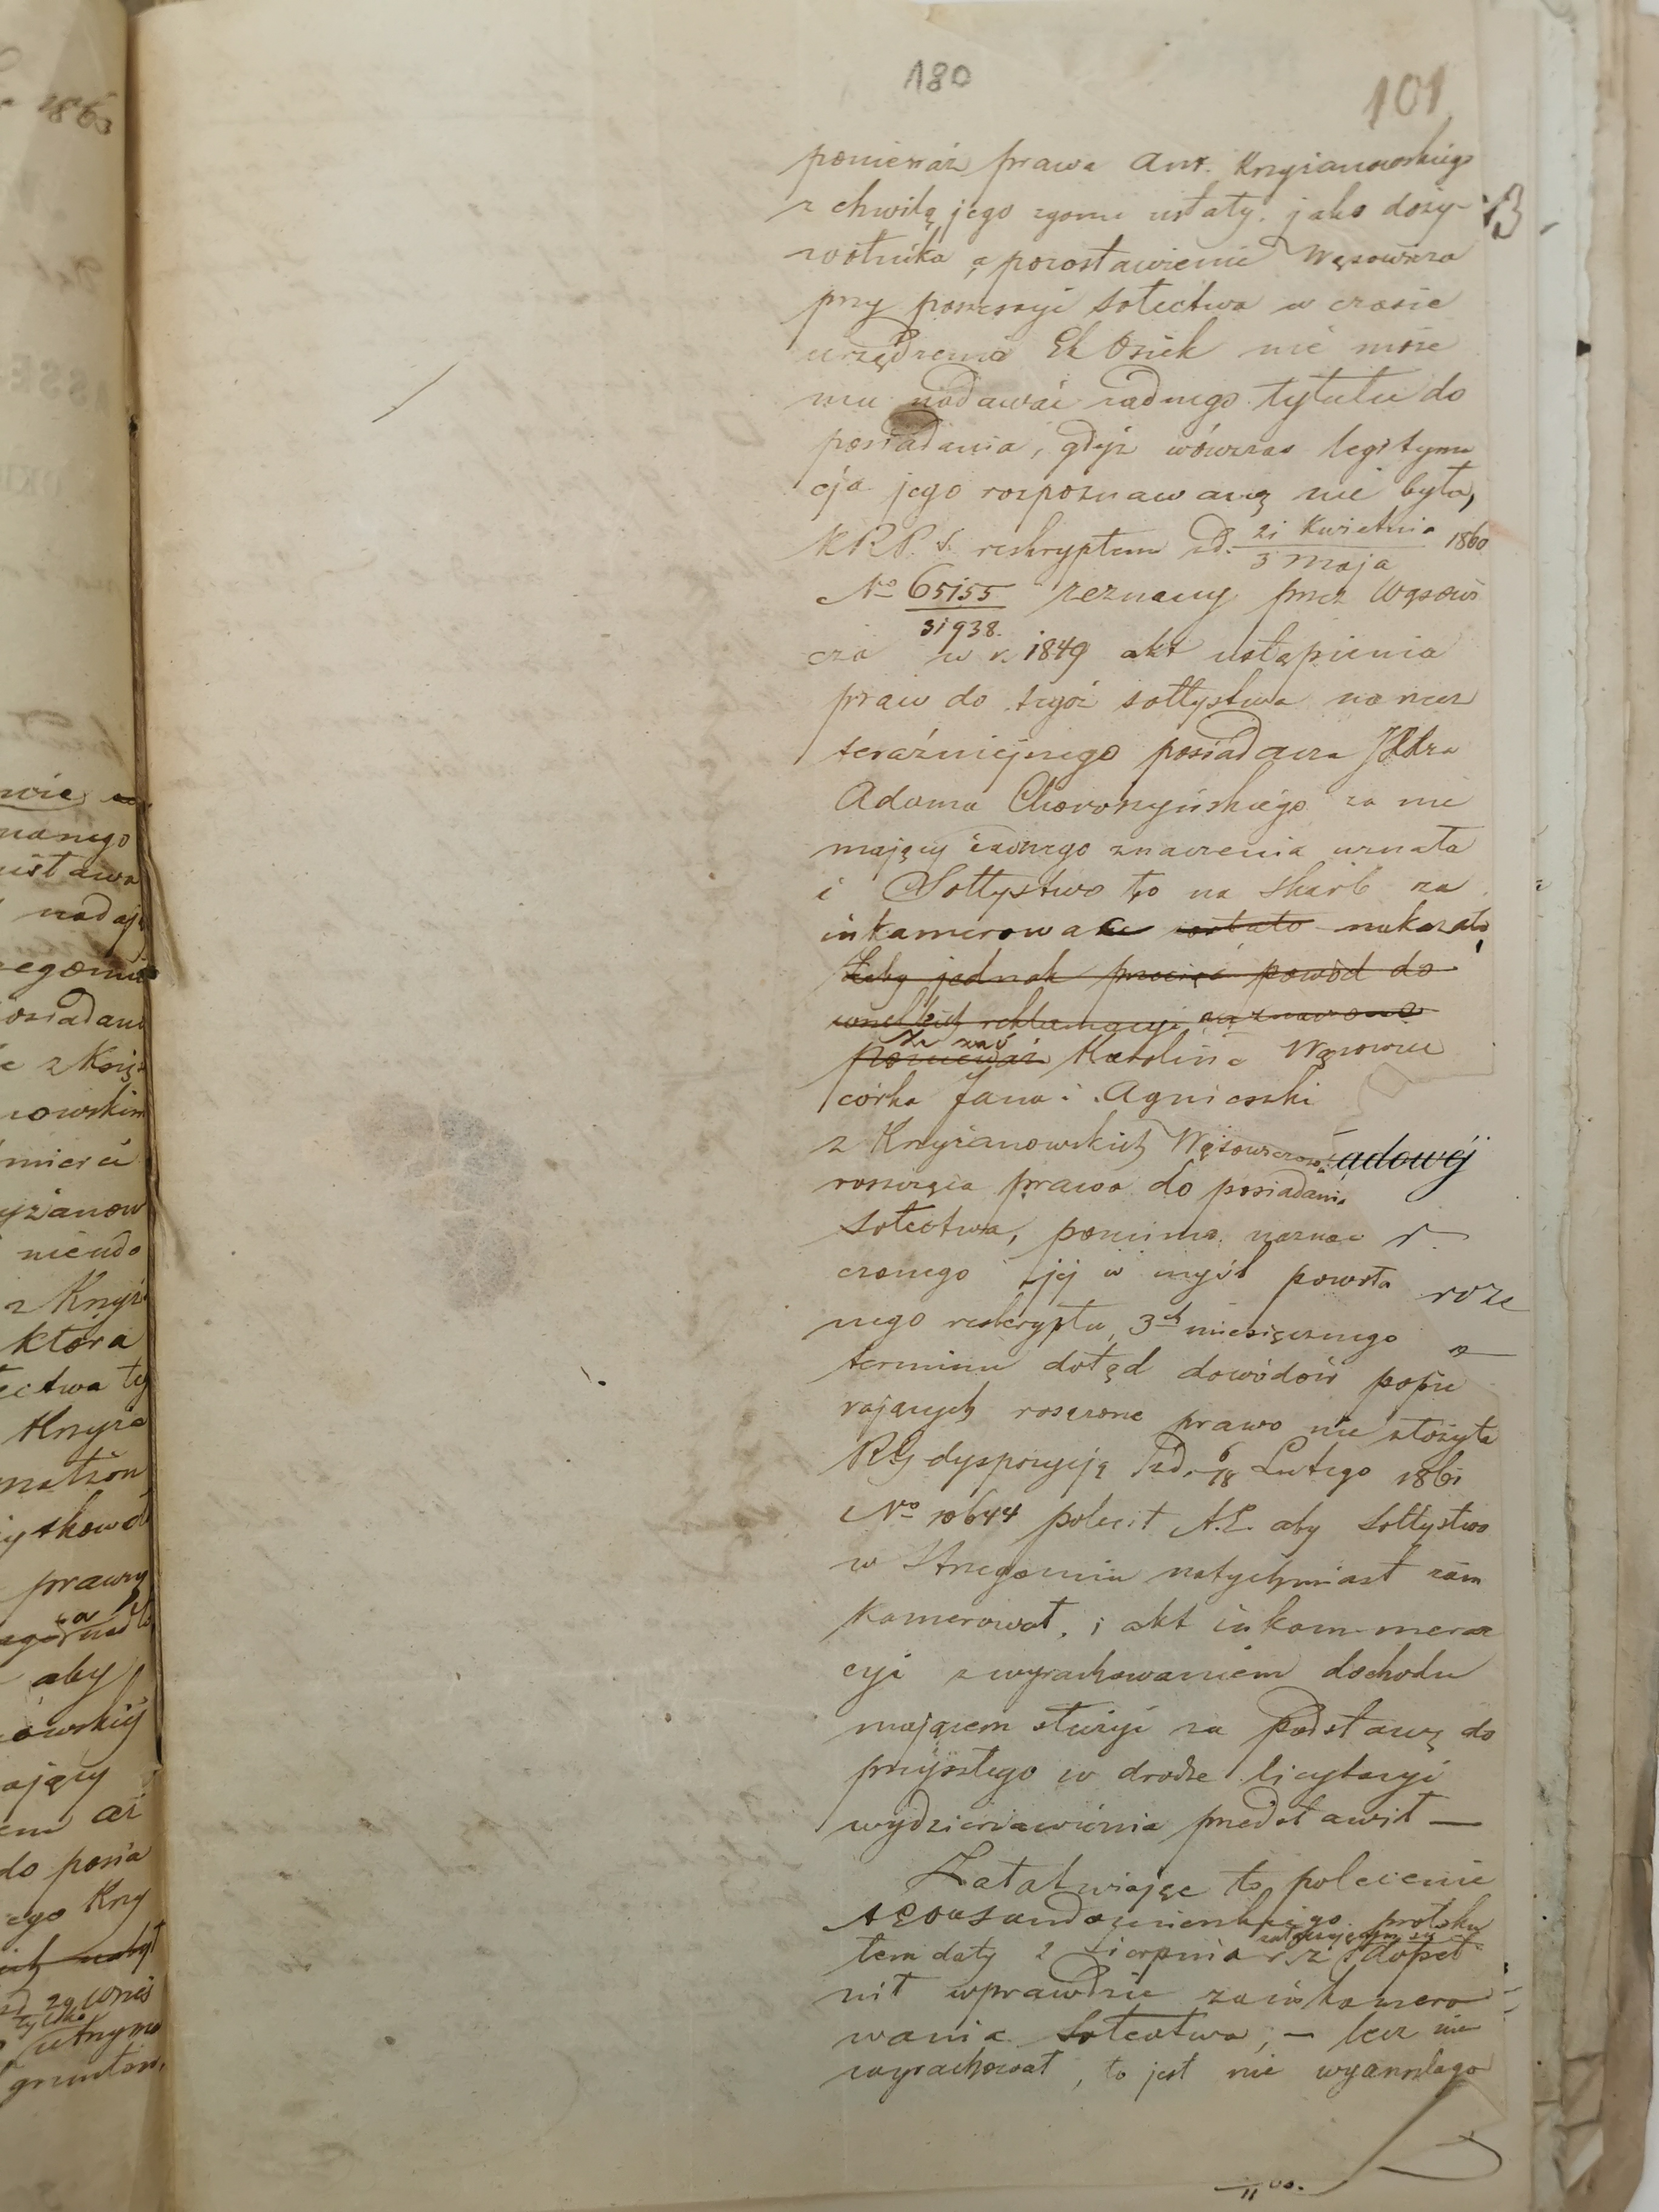 180
101
ponieważ prawa Ant. Krzyżanowskiego
z chwilą jego zgonu ustały, jako doży-
wotnika a pozostawienie Wąsowicza
przy possessyi Sołectwa w czasie
urządzenia Ek Osiek nie może
mu nadawać żadnego tytułu do
posiadania, gdyż wówczas legityma
cja jego rozpoznawaną nie była,
KRP. S. reskryptem z d. 21 Kwietnia 1860
3 Maja
No 65155 zeznany przez Wąsowi
31938.
cza w r. 1849 akt ustąpienia
praw do tegoż sołtystwa na rzecz
teraźniejszego posiadacza
Adama za nie
mający żadnego znaczenia uznała
i Sołtystwo to na Skarb za
inkamerować zostało nakazała
Żeby jednak powód do
wszelkich reklamacyi
Że zaś
ponieważ Karolina Wąsowicz
córka Jana i Agnieszki
z Krzyżanowskich Wąsowiczów
adowéj
roszcząca prawa do posiadania
Sołectwa, pomimo naznac
r.
czonego jej w myśl powoła
roze
nego reskryptu, 3ch miesięcznego
terminu dotąd dowodów popie
rających roszczone prawo nie złożyła
RG dyspozycją z d. 6/18 Lutego 1861
No 10644 polecił A.E. aby Sołtystwo
w Strzegomiu natychmiast zain
kamerował, i akt inkammera
cyi z wyrachowaniem dochodu
mającem służyć za podstawę do
przyszłego w drodze licytacyi
wydzierżawienia przedstawił —
Załatwiając to polecenie
AEOu Sandomierskiego protoku
łem daty 2 Sierpnia r. z. dopeł
nił wprawdzie zainkamero
wania Sołectwa, — lecz nie
wyrachował, to jest nie